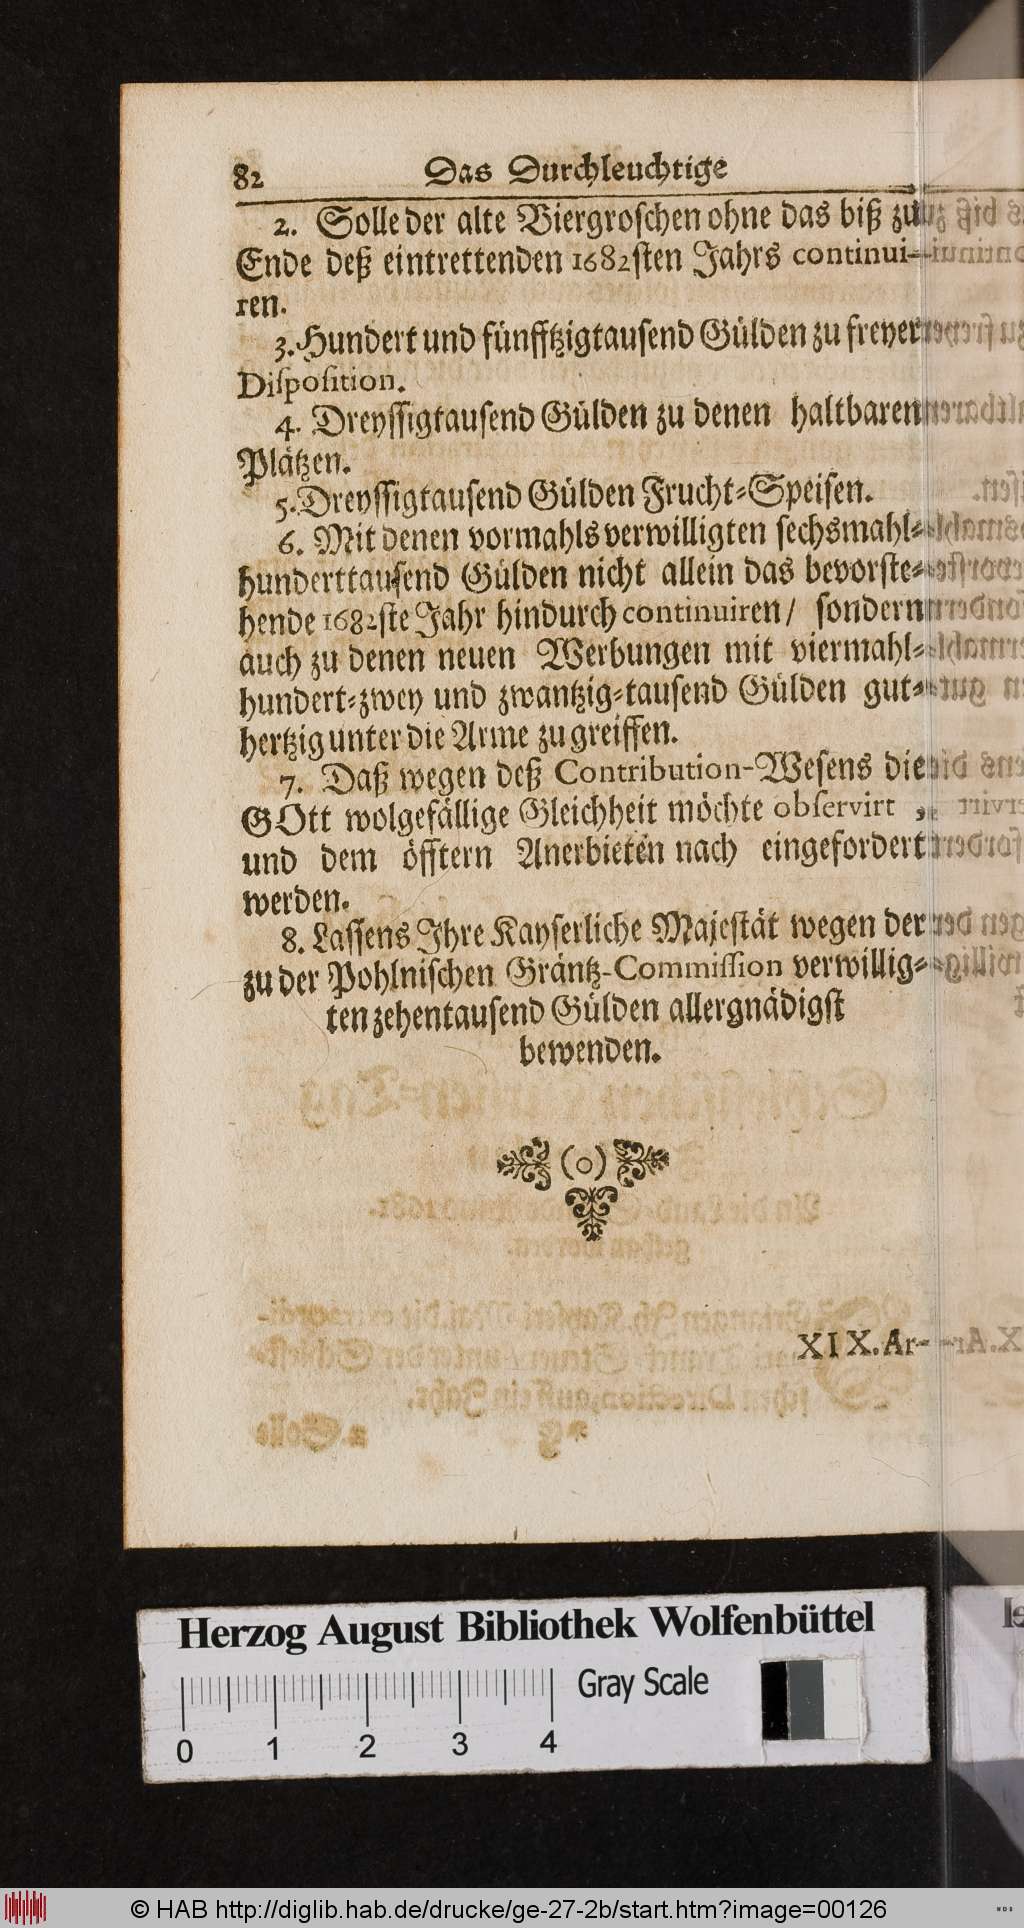 82 Das Durchleuchtige
2. Solle der alte Biergroschen ohne das biß zu
Ende deß eintrettenden 1682sten Jahrs continui-
ren.
3. Hundert und fünfftzigtausend Gülden zu freyer
Disposition.
4. Dreyssigtausend Gülden zu denen haltbaren
Plätzen.
5. Dreyssigtausend Gülden Frucht-Speisen.
6. Mit denen vormahls verwilligten sechsmahl-
hunderttausend Gülden nicht allein das bevorste-
hende 1682ste Jahr hindurch continuiren / sondern
auch zu denen neuen Werbungen mit viermahl-
hundert-zwey und zwantzig-tausend Gülden gut-
hertzig unter die Arme zu greiffen.
7. Daß wegen deß Contribution-Wesens die
GOtt wolgefällige Gleichheit möchte observirt ,
und dem öfftern Anerbieten nach eingefordert
werden.
8. Lassens Ihre Kayserliche Majestät wegen der
zu der Pohlnischen Gräntz-Commission verwillig-
ten zehentausend Gülden allergnädigst
bewenden.
(o)
XIX. Ar-
Herzog August Bibliothek Wolfenbüttel
Gray Scale
0 1 2 3 4
© HAB http://diglib.hab.de/drucke/ge-27-2b/start.htm?image=00126